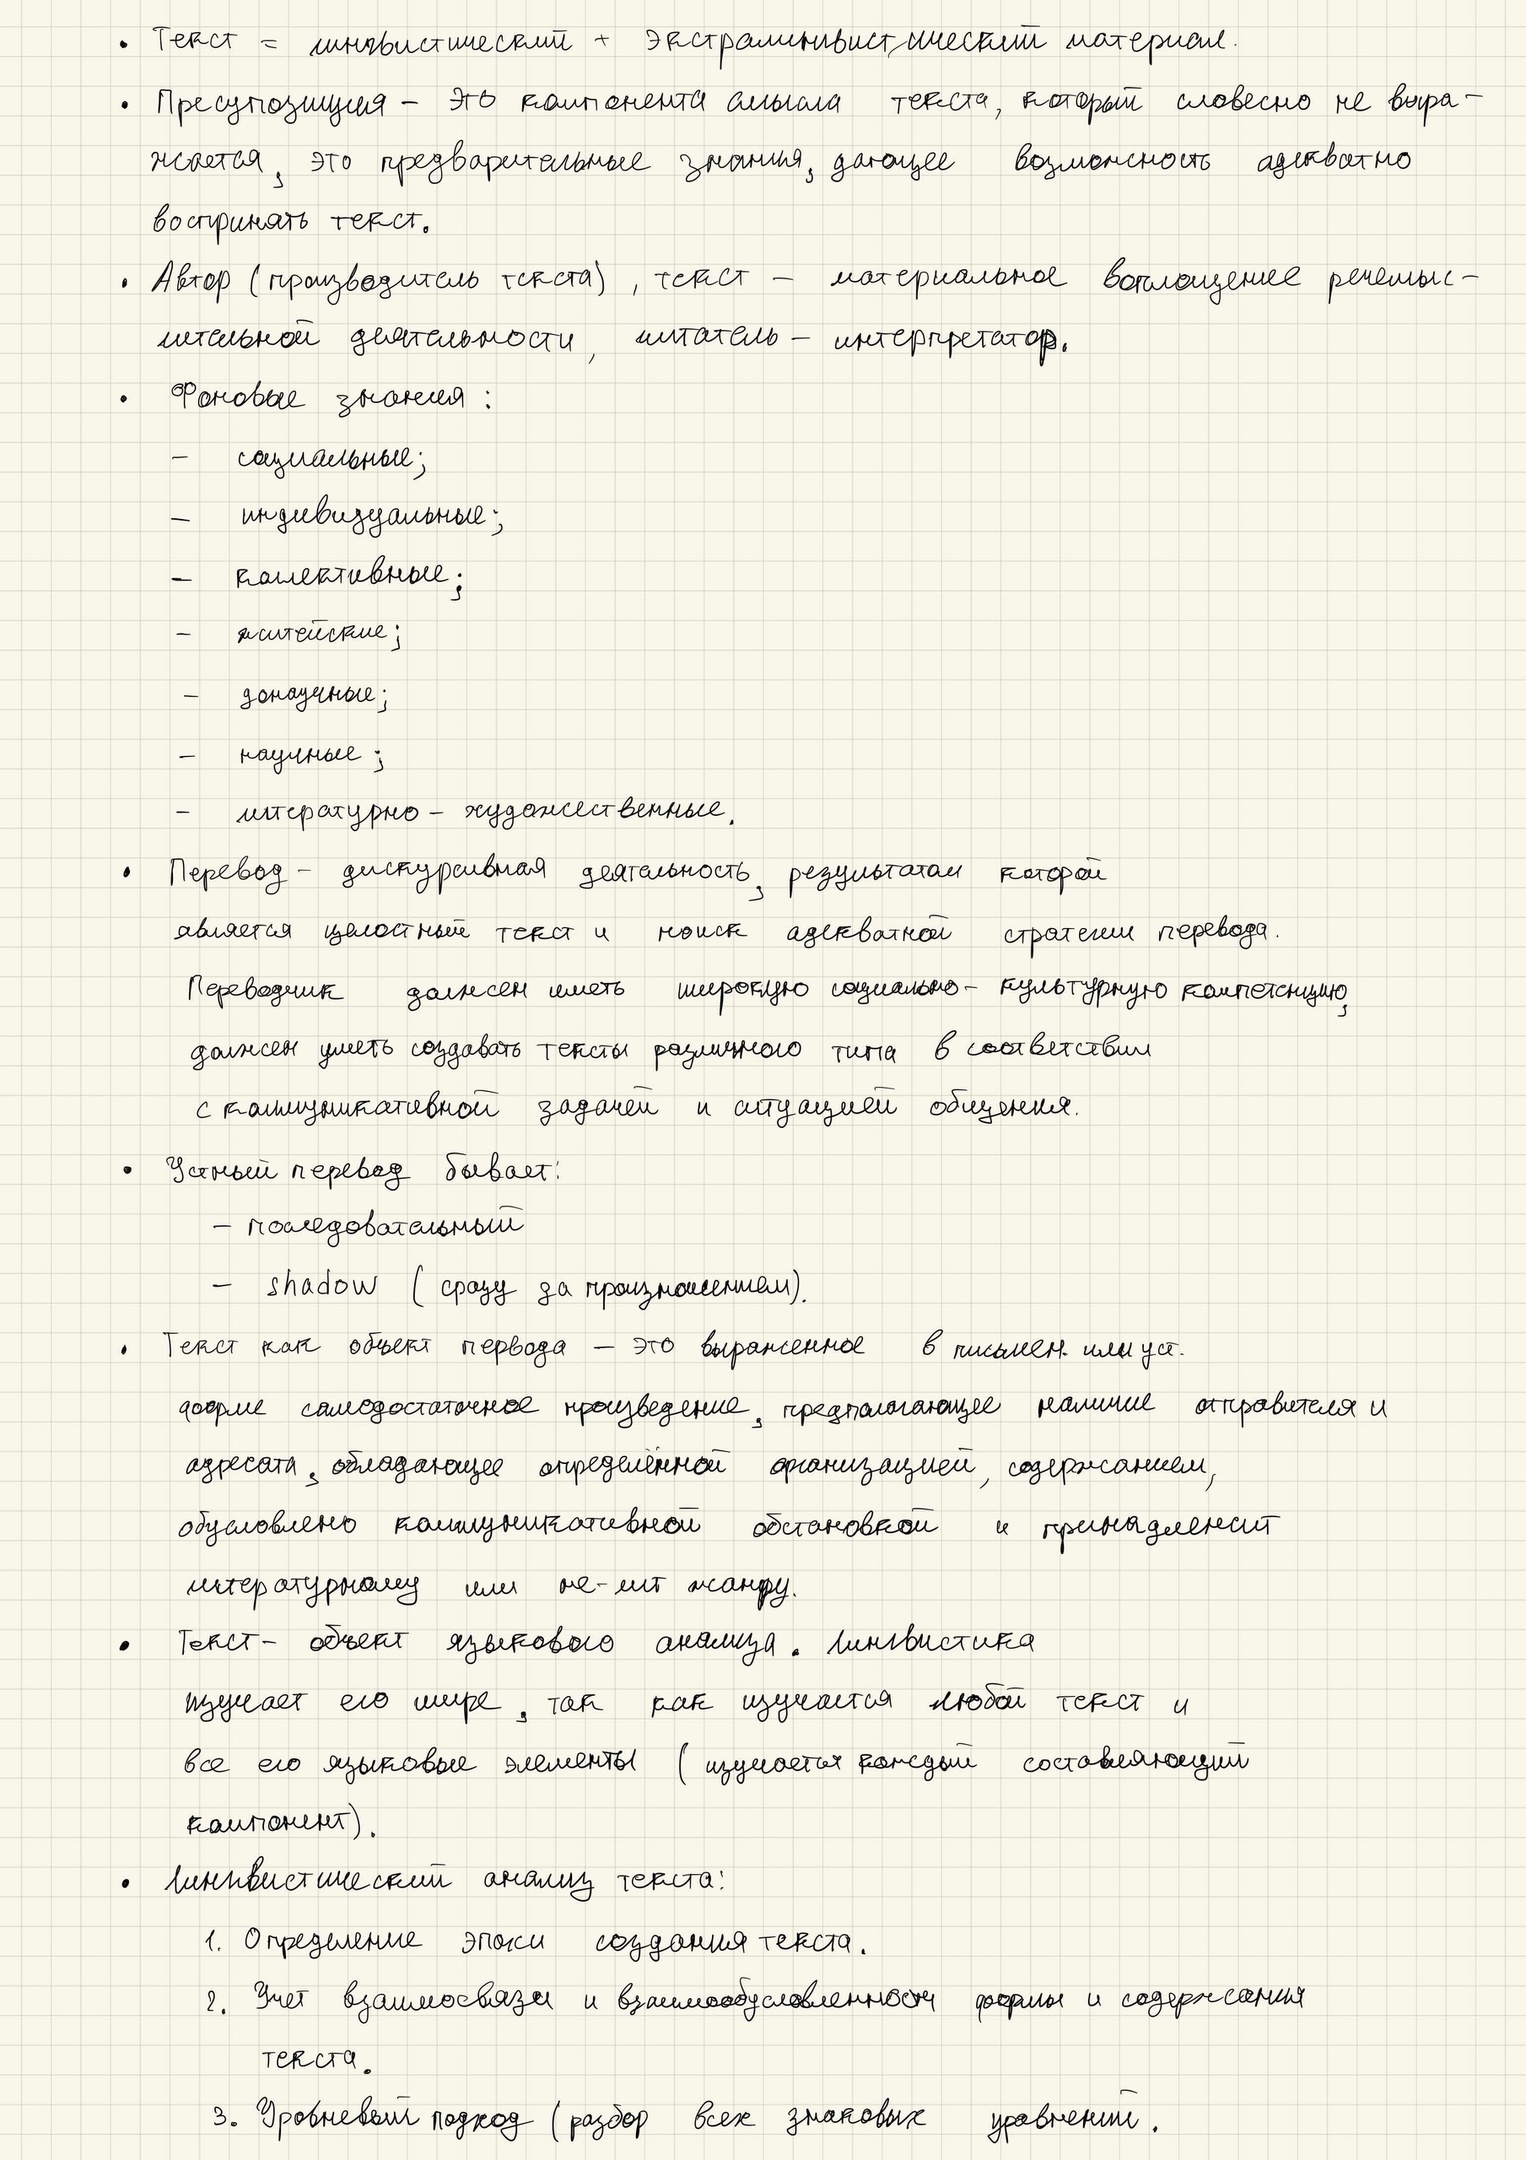 • Текст = лингвистический + экстралингвистический материал.
• Пресупозиция – это компонента смысла текста, который словесно не выра-
жается, это предварительные знания, дающее возможность адекватно
воспринять текст.
• Автор (производитель текста), текст – материальное воплощение речемыс-
лительной деятельности, читатель – интерпретатор.
• Фоновые знания:
– социальные;
– индивидуальные;
– коллективные;
– житейские;
– донаучные;
– научные;
– литературно – художественные.
• Перевод – дискурсивная деятельность, результатом которой
является целостный текст и поиск адекватной стратегии перевода.
Переводчик должен иметь широкую социально – культурную компетенцию,
должен уметь создавать тексты различного типа в соответствии
с коммуникативной задачей и ситуацией общения.
• Устный перевод бывает:
– последовательный
– shadow (сразу за произношением).
• Текст как объект первода – это выраженное в письмен. или уст.
форме самодостаточное произведение, предполагающее наличие отправителя и
адресата, обладающее определённой организацией, содержанием,
обусловлено коммуникативной обстановкой и принадлежит
литературному или не-лит жанру.
• Текст – объект языкового анализа. Лингвистика
изучает его шире, так как изучается любой текст и
все его языковые элементы (изучается каждый составляющий
компонент).
• Лингвистический анализ текста:
1. Определение эпохи создания текста.
2. Учет взаимосвязи и взаимообусловленности формы и содержания
текста.
3. Уровневый подход (разбор всех знаковых уравнений.